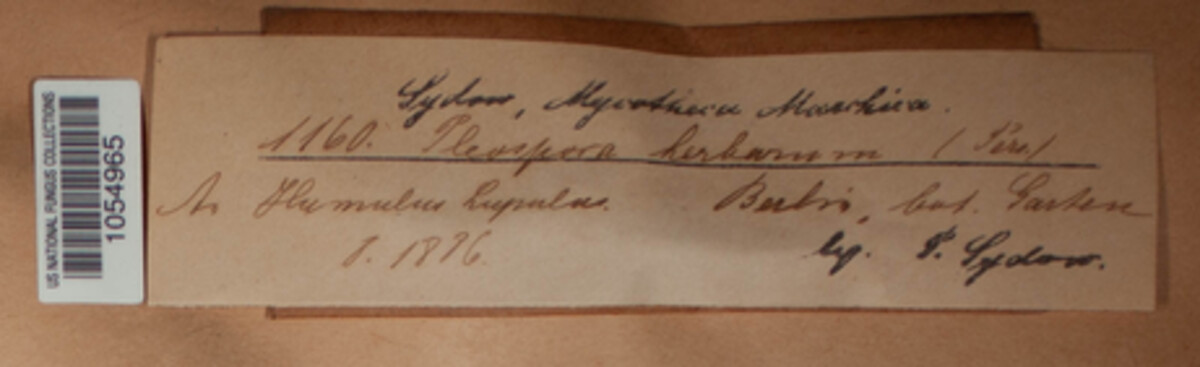 US NATIONAL FUNGUS COLLECTIONS
1054965
Sydow, Mycotheca Marchica.
1160. Pleospora herbarum (Pers.)
An Humulus Lupulus. Berlin, bot. Garten
leg. P. Sydow.